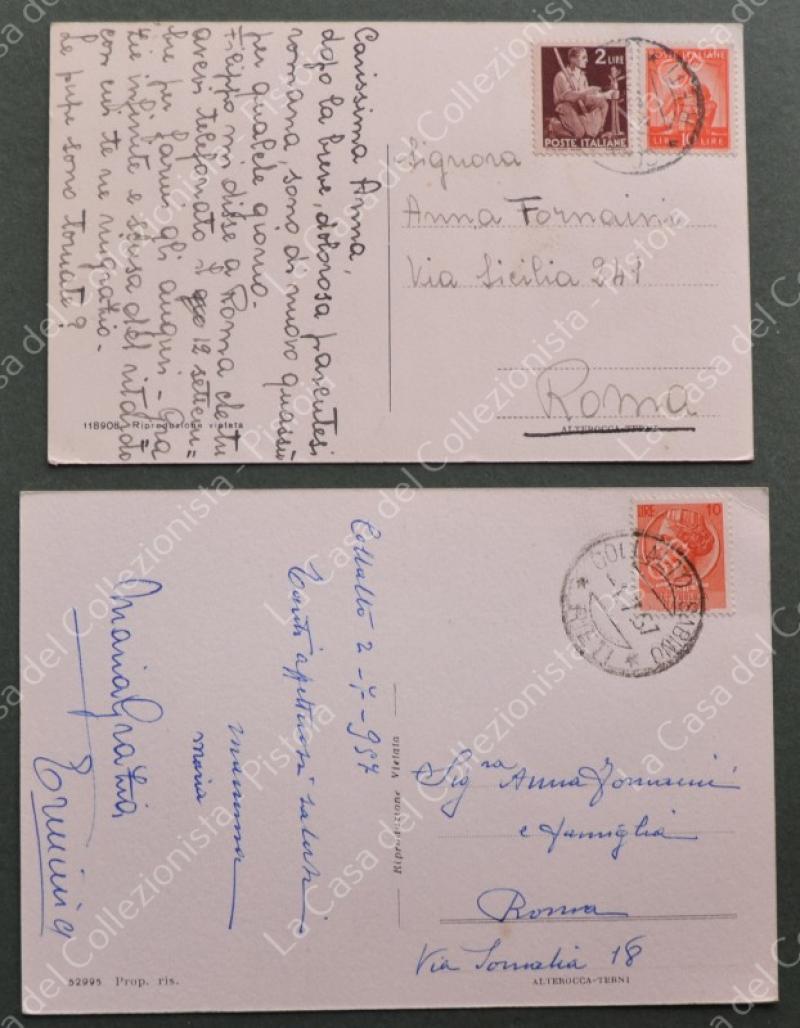 Carissima Anna,
dopo la breve, dolorosa parentesi
romana, sono di nuovo quassù
per qualche giorno.
Filippo mi disse a Roma che tu
avevi telefonato il 12 settem=
bre per farmi gli auguri - Gra
zie infinite e scusa del ritardo
con cui te ne ringrazio -
Le pupe sono tornate?
118908 Riproduzione vietata
2 LIRE
POSTE ITALIANE
POSTE ITALIANE
LIRE
Signora
Anna Fornaini
Via Sicilia 241
Roma
ALTEROCCA-TERNI
Collalto 2-7-957
Tanti affettuosi saluti
mamma
Maria
Maria Grazia
52995 Prop. ris.
Riproduzione Vietata
LIRE 10
COLLALTO SABINO
RIETI
Sig.ra Anna Fornaini
e famiglia
Roma
Via Somalia 18
ALTEROCCA-TERNI
La Casa del Collezionista - Pistoia